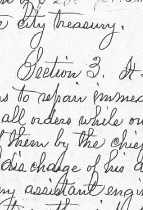 city treasury.
Section 3. It
to repair immed
all orders while on
them by the chief
discharge of his d
assistant engin